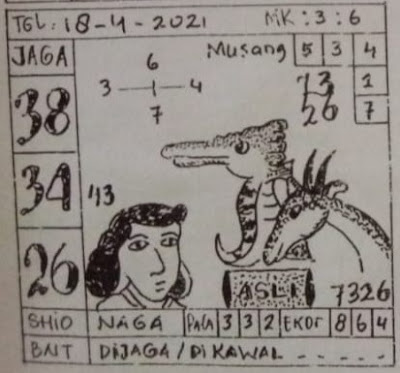 TGL: 18-4-2021 MK: 3 : 6
JAGA Musang 5 3 4
6
3 — 1 — 4
7
13 1
26 7
38
34
26
43
ASLI
7326
SHIO NAGA PALA 3 3 2 EKOR 8 6 4
BNT DIJAGA / DI KAWAL - - - - -